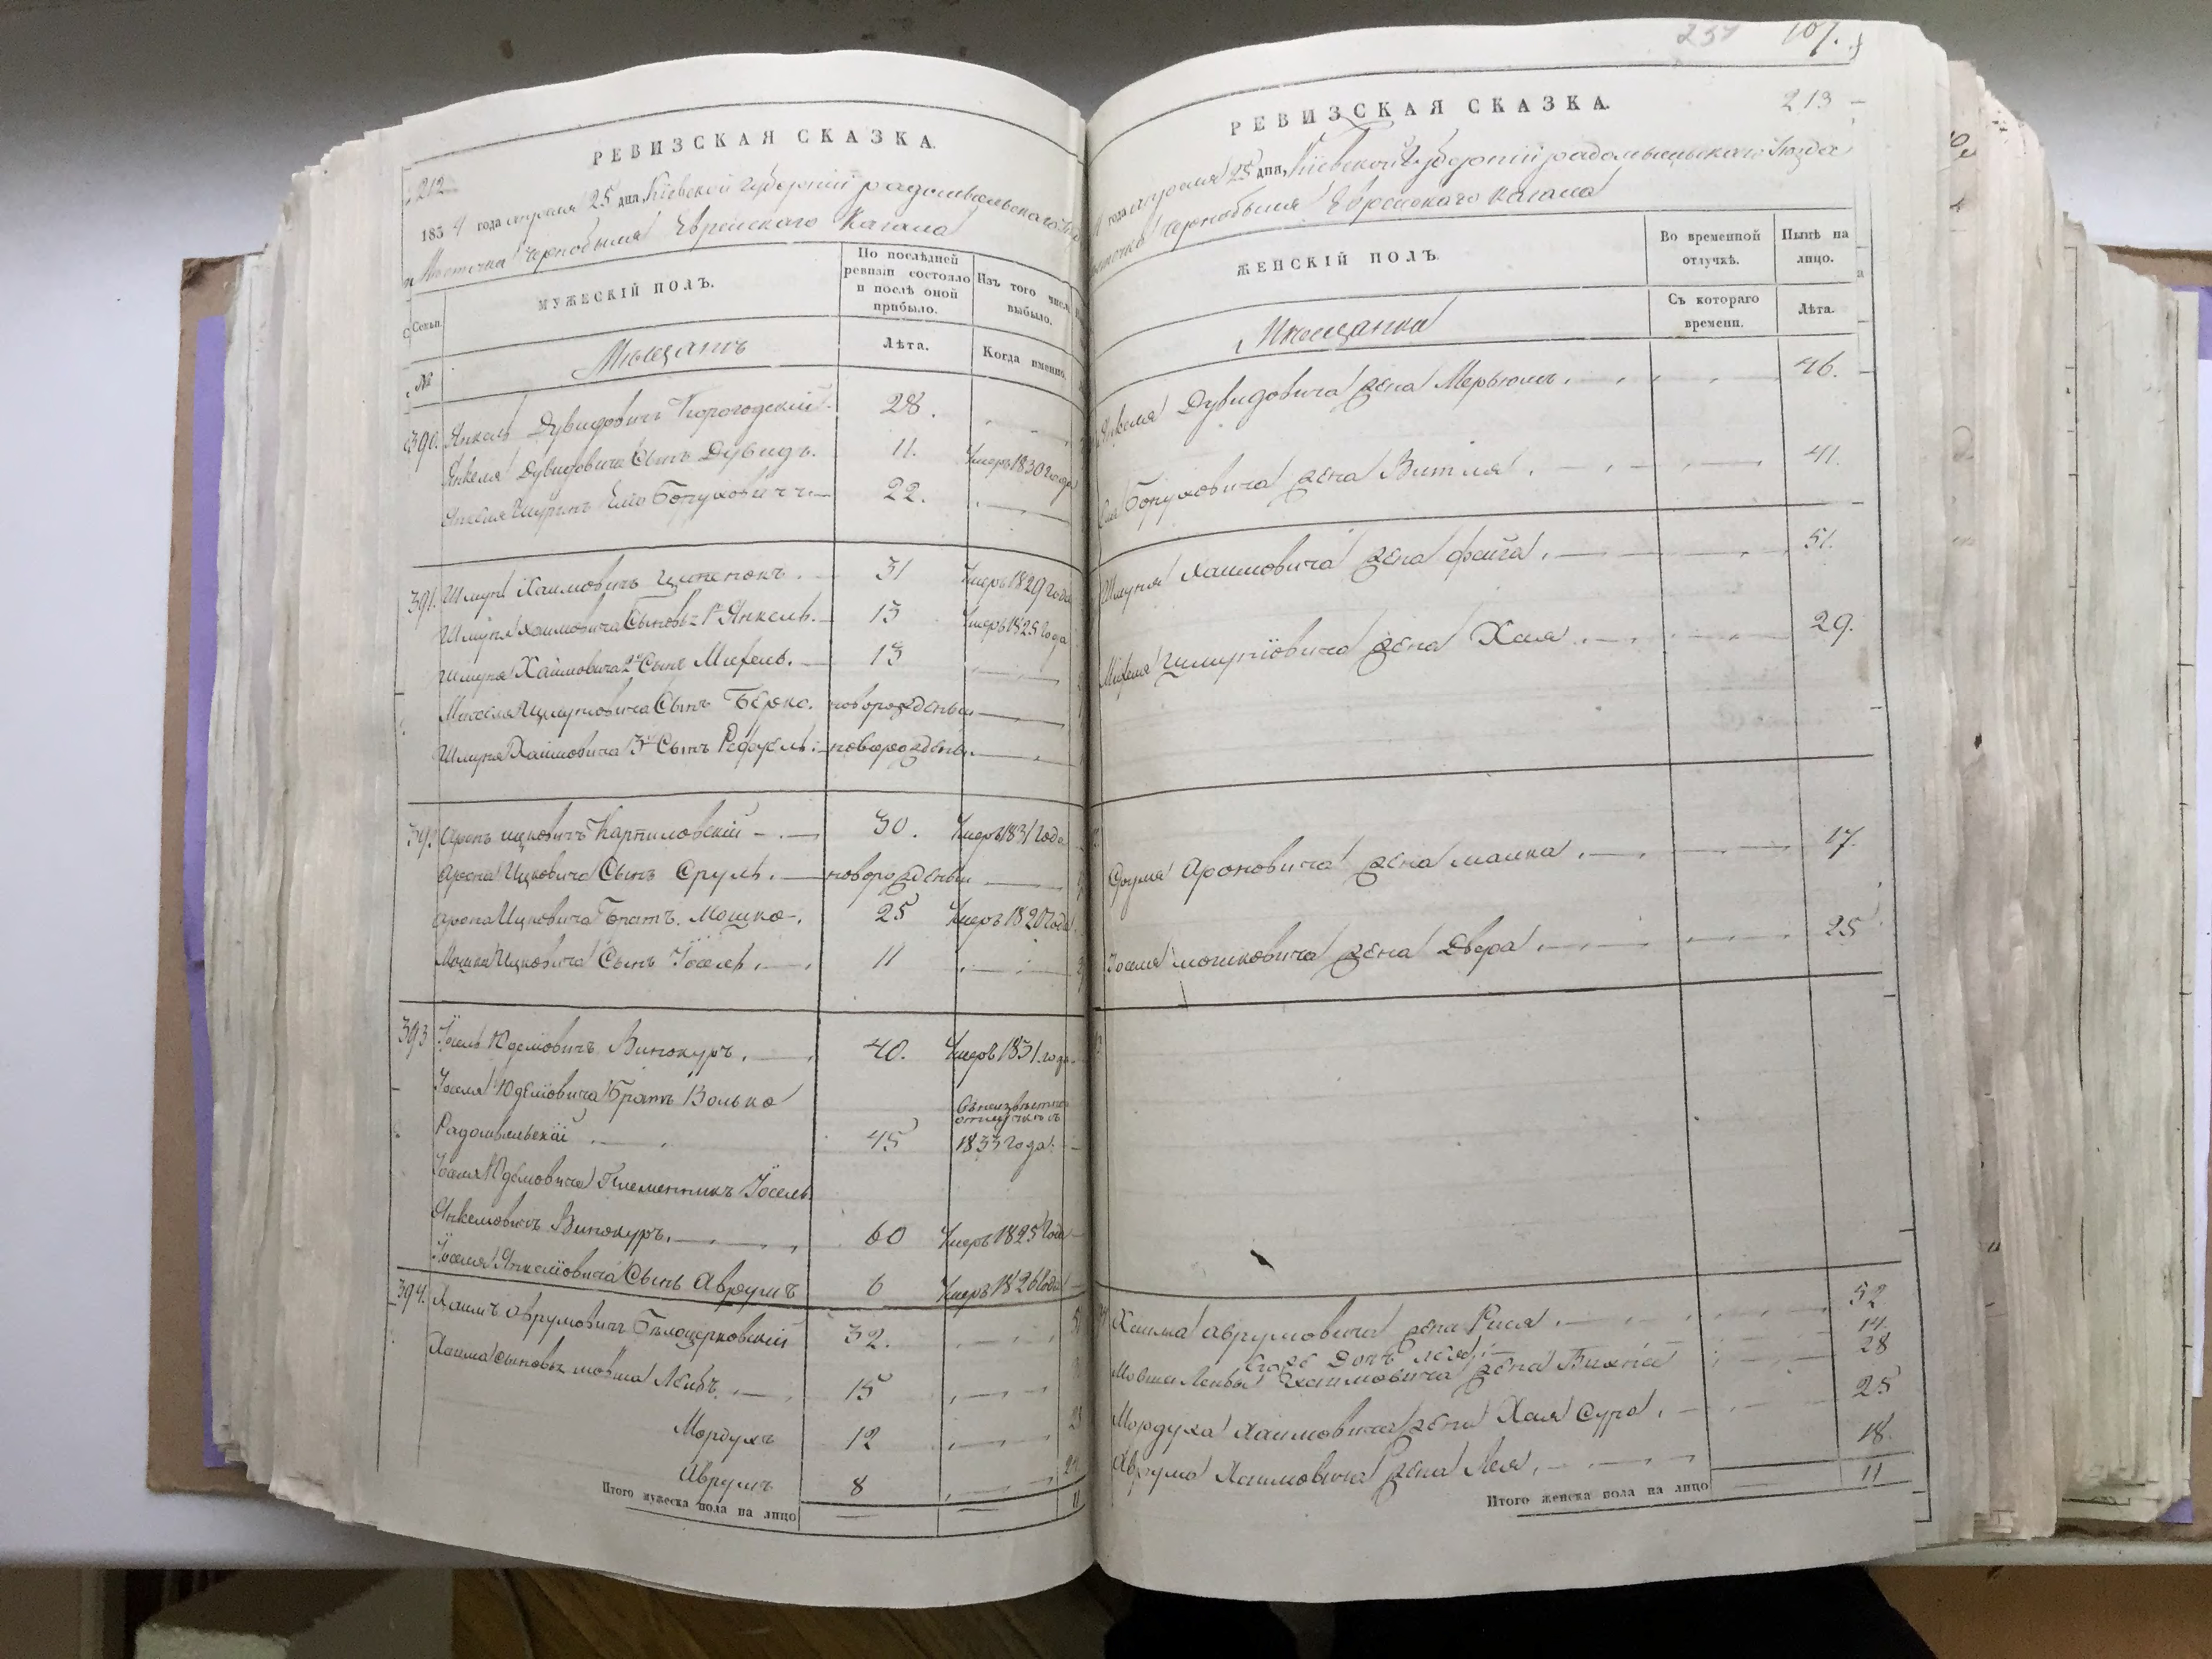 212
РЕВИЗСКАЯ СКАЗКА.
1834 года апреля 25 дня, Кіевской Губерніи радомысльскаго
Местечка Чернобыля Еврейскаго Кагала
Семьи.
МУЖЕСКІЙ ПОЛЪ.
По послѣдней ревизіи состояло и послѣ оной прибыло.
Изъ того числа выбыло.
№
Мещанъ
Лѣта.
Когда именно.
390. Янкель Дувидовичъ Корогодскій 28.
Янкеля Дувидовича Сынъ Дувидъ. 11. Умеръ 1830 года
Янкеля Шуринъ Еля Боруховичъ 22.
391. Шмуль Хаимовичъ 31 Умеръ 1829 года
Шмуля Хаимовича Сыновья 1й Янкель. 13 Умеръ 1825 года
Шмуля Хаимовича 2й Сынъ Михель. 13
Михеля Шмуліовича Сынъ Берко. новорожденый
Шмуля Хаимовича 3й Сынъ Рефуель. новорожденый
392. Аронъ Ицковичъ Карпиловскій 30. Умеръ 1831 года
Арона Ицковича Сынъ Сруль. новорожденый
Арона Ицковича Братъ Мошко. 25 Умеръ 1820 года
Мошка Ицковича Сынъ Іосель 11
393 Іосель Юделіовичъ Винокуръ. 40. Умеръ 1831 года
Іоселя Юделіовича Братъ Волько
Радомысльскій 45 въ неизвестной отлучке съ 1833 года.
Іоселя Юделіовича Племенникъ Іосель
Янкелиовичъ Винокуръ. 60 Умеръ 1825 года
Іоселя Янкеліовича Сынъ Аврумъ 6 Умеръ 1826 года
394. Хаимъ Аврумовичъ Белоцерковскій 32.
Хаима Сыновья Мовша Лейбъ 15
Мордухъ 12
Аврумъ 8
Итого мужеска пола на лицо 11
107.
213
РЕВИЗСКАЯ СКАЗКА.
года апреля 25 дня, Кіевской Губерніи радомысльскаго Уезда
местечка Чернобыля Еврейскаго Кагала
ЖЕНСКІЙ ПОЛЪ.
Во временной отлучкѣ.
Нынѣ на лицо.
Мещанка
Съ котораго времени.
Лѣта.
Янкеля Дувидовича жена Мерьямъ. 46.
Ели Боруховича жена Витля. 41.
Шмуля Хаимовича жена Фейга. 51.
Михеля Шмуліовича жена Хая 29.
Сруля Ароновича жена Малка. 17.
Іоселя Мошковича жена Двера 25
Хаима Аврумовича жена Рися 52
его же дочь Лея 14.
Мовши Лейбы Хаимовича жена 28
Мордуха Хаимовича жена Хая Сура. 25
Аврума Хаимовича жена Лея. 18.
Итого женска пола на лицо 11